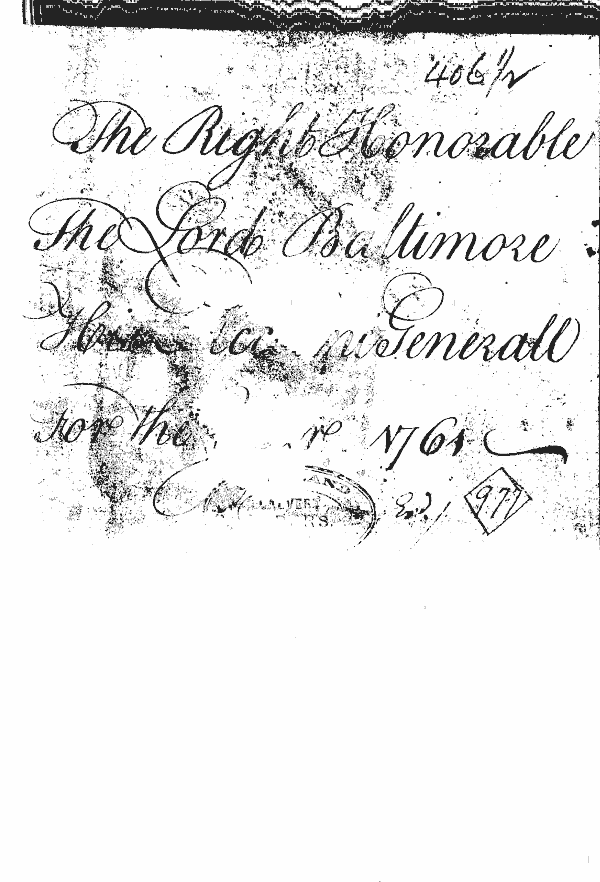 406 1/2
The Right Honorable
The Lord Baltimore
His Generall
For the 1761
CALVERT
977